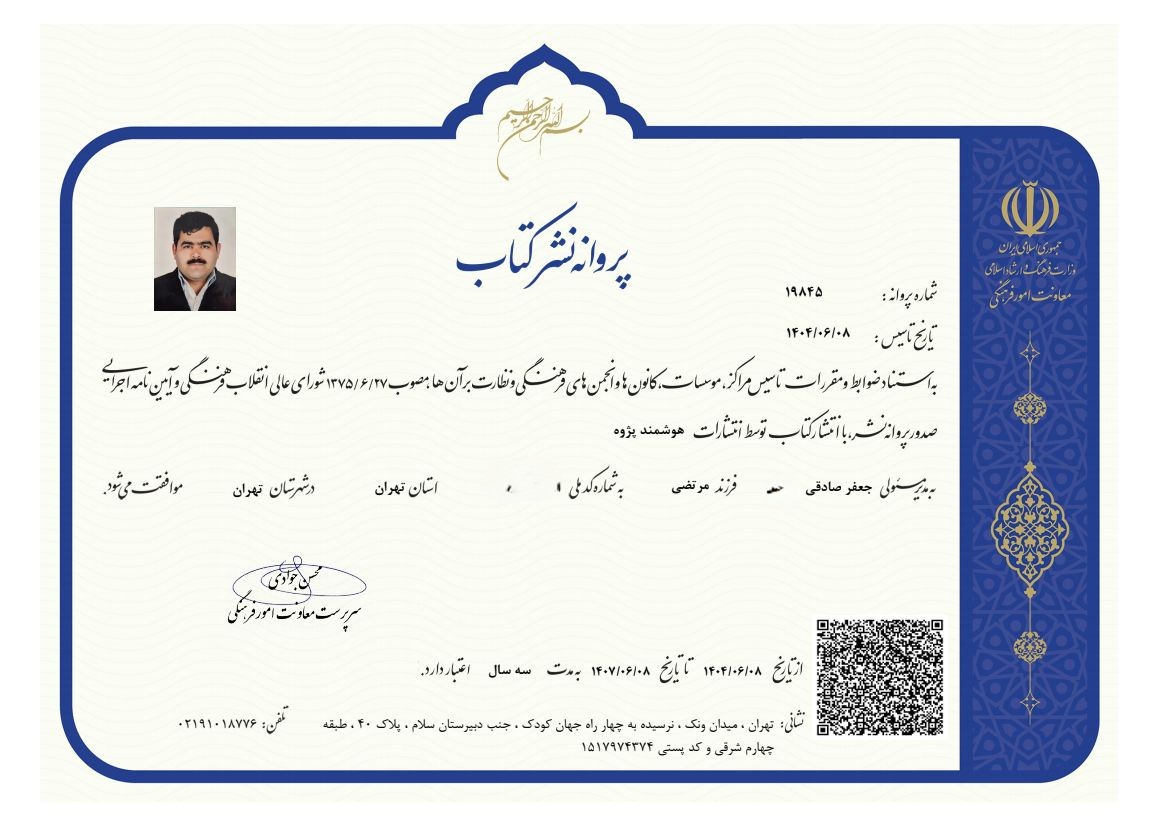 بسم الله الرحمن الرحیم
جمهوری اسلامی ایران
وزارت فرهنگ و ارشاد اسلامی
معاونت امور فرهنگی
پروانه نشر کتاب
شماره پروانه : ۱۹۸۴۵
تاریخ تاسیس : ۱۴۰۴/۰۶/۰۸
به استناد ضوابط و مقررات تاسیس مراکز، موسسات، کانون ها و انجمن های فرهنگی و نظارت بر آن ها، مصوب ۱۳۷۵/۶/۲۷ شورای عالی انقلاب فرهنگی و آیین نامه اجرایی
صدور پروانه نشر، با انتشار کتاب توسط انتشارات هوشمند پژوه
به مدیر مسئولی جعفر صادقی فرزند مرتضی به شماره کد ملی استان تهران در شهرستان تهران موافقت می شود.
محسن جوادی
سرپرست معاونت امور فرهنگی
از تاریخ ۱۴۰۴/۰۶/۰۸ تا تاریخ ۱۴۰۷/۰۶/۰۸ به مدت سه سال اعتبار دارد.
نشانی: تهران ، میدان ونک ، نرسیده به چهار راه جهان کودک ، جنب دبیرستان سلام ، پلاک ۴۰ ، طبقه
چهارم شرقی و کد پستی ۱۵۱۷۹۷۴۳۷۴
تلفن: ۰۲۱۹۱۰۱۸۷۷۶